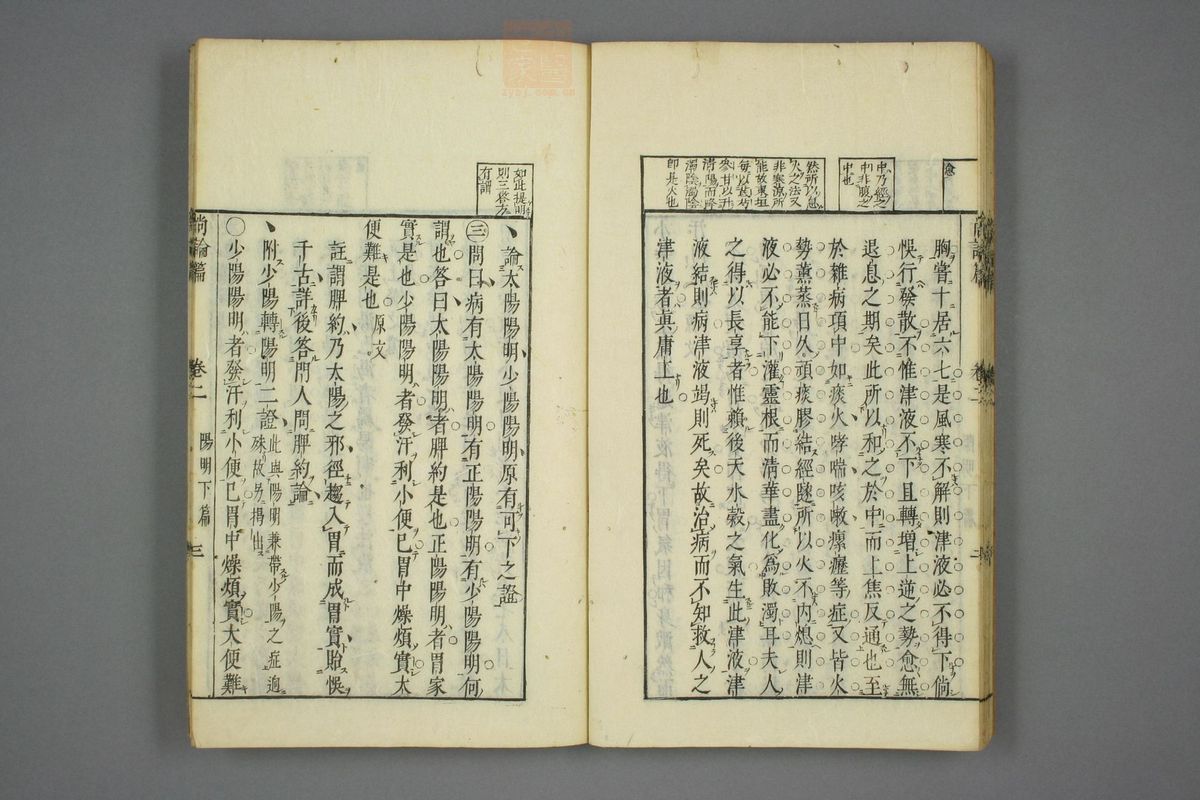 中乃經之
中非腹之
中也
然所以熄
火之法又
非寒涼所
能故東垣
每以甘
清陽而降
濁陰濁陰
即是火也
胸嘗十居六七是風寒不解則津液必不得下倘
悞行發散不惟津液不下且轉增上逆之勢愈無
退息之期矣此所以和之於中而上焦反通也至
於雜病項中如痰火哮喘咳嗽瘰癧等症又皆火
勢薰蒸日久頑痰膠結經隧所以火不內熄則津
液必不能下灌靈根而清華盡化為敗濁耳夫人
之得以長享者惟賴後天水穀之氣生此津液津
液結則病津液竭則死矣故治病而不知救人之
津液者眞庸工也
尚論篇
卷二
陽明下篇
三
如此提明
則三條方
有謂
論太陽陽明少陽陽明原有可下之證
三問曰病有太陽陽明有正陽陽明有少陽陽明何
謂也答曰太陽陽明者脾約是也正陽陽明者胃家
實是也少陽陽明者發汗利小便已胃中燥煩實大
便難是也原文
註謂脾約乃太陽之邪徑趨入胃而成胃實貽悞
千古詳後答門人問脾約論
附少陽轉陽明二證此與陽明兼帶少陽之症迥
殊故另揭出
○少陽陽明者發汗利小便已胃中燥煩實大便難
尚論篇
卷二
陽明下篇
三
zysj.com.cn